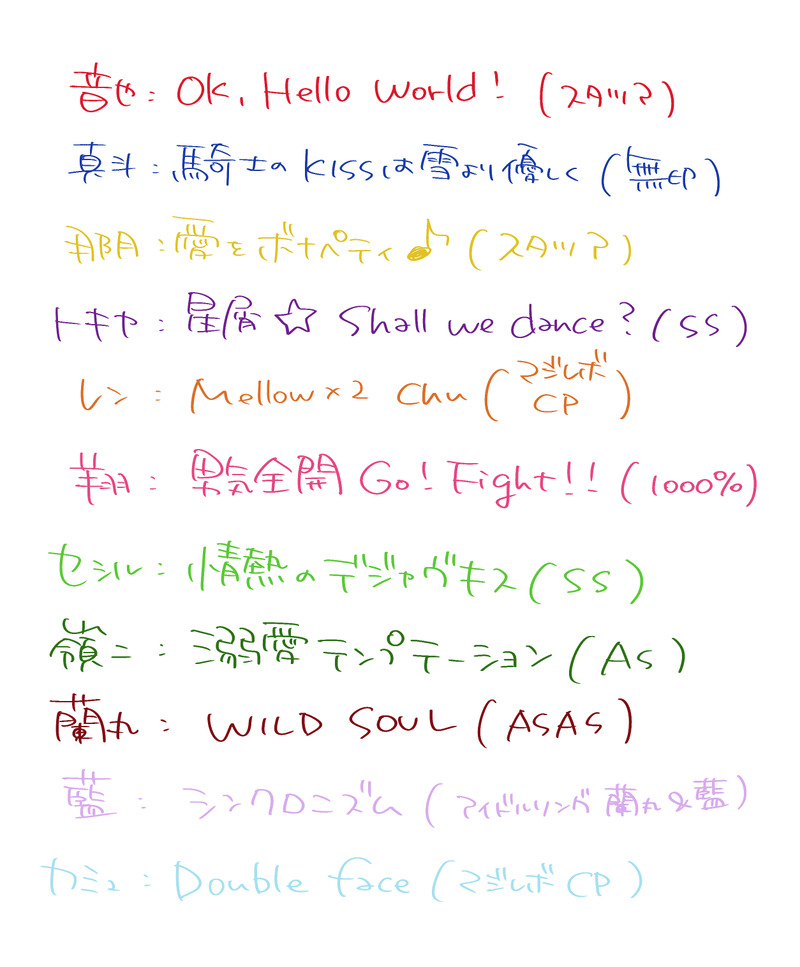 音也：OK, Hello world！（スタツア）
真斗：騎士のKISSは雪より優しく（無印）
那月：愛をボナペティ♪（スタツア）
トキヤ：星屑☆Shall we dance？（SS）
レン：Mellow×2 Chu（マジレボCP）
翔：男気全開Go！Fight！！（1000%）
セシル：情熱のデジャヴキス（SS）
嶺二：溺愛テンプテーション（AS）
蘭丸：WILD SOUL（ASAS）
藍：シンクロニズム（アイドルソング 蘭丸&藍）
カミュ：Double face（マジレボCP）